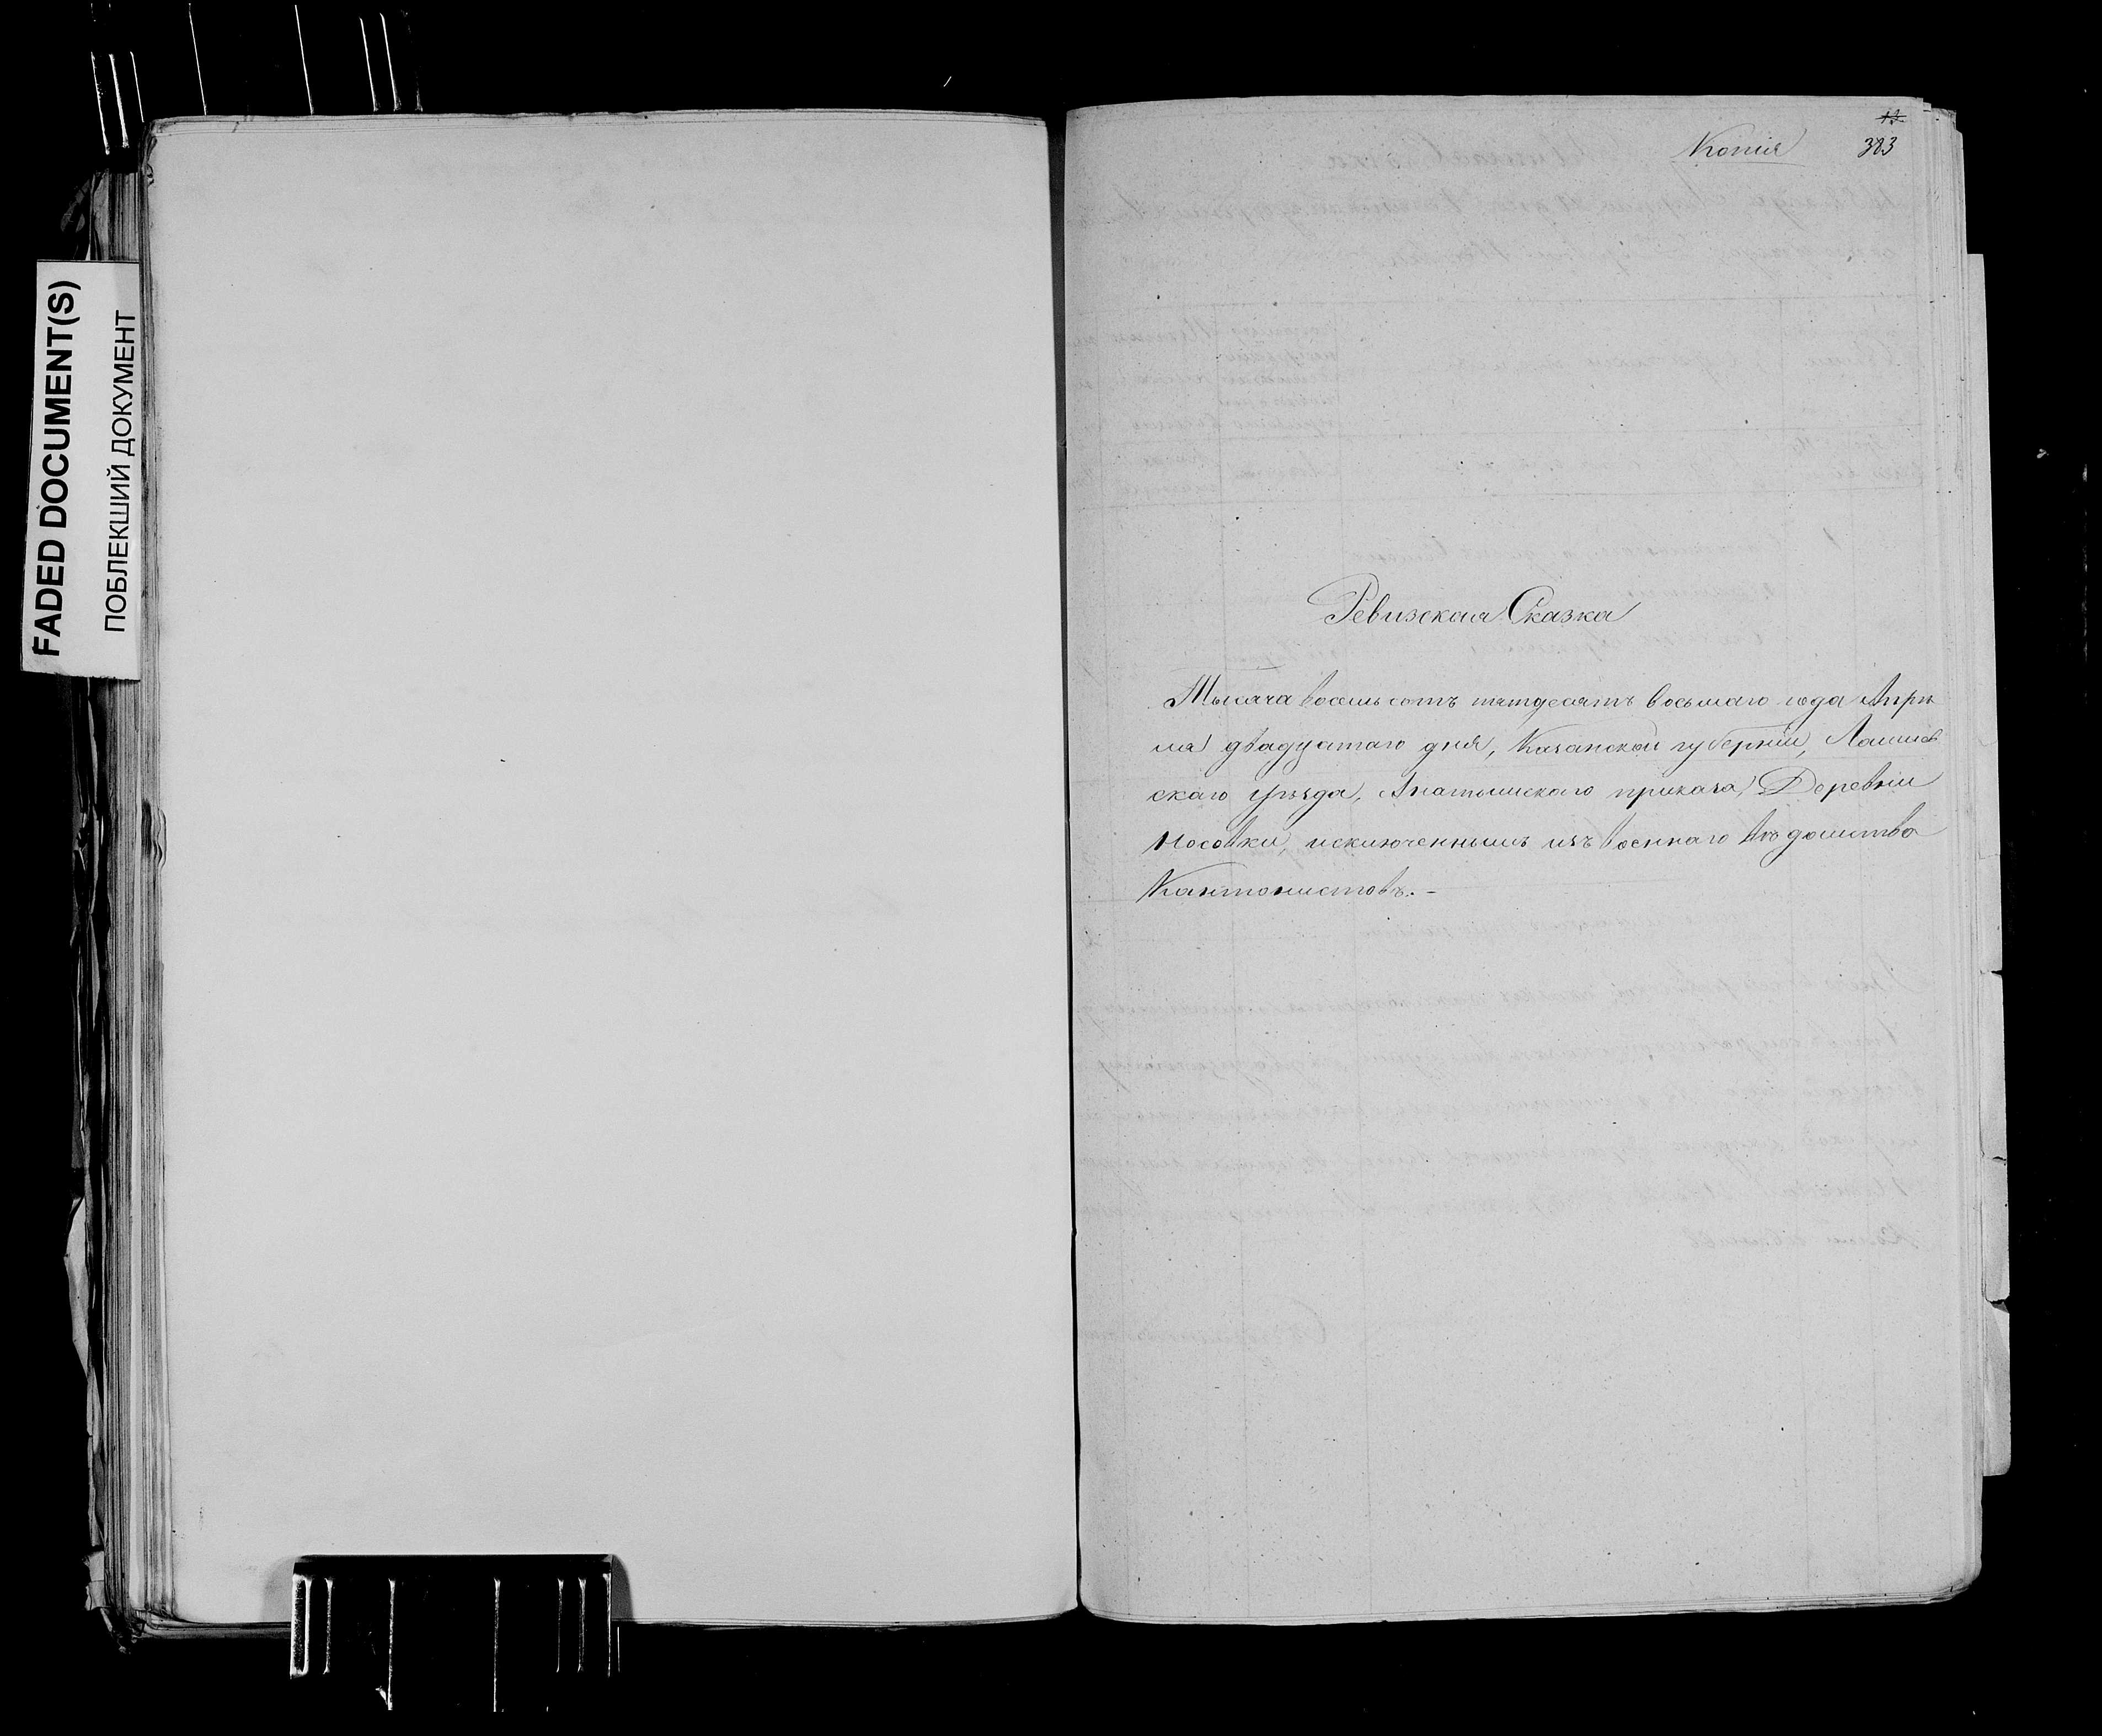 FADED DOCUMENT(S)
ПОБЛЕКШИЙ ДОКУМЕНТ
12.
Копія 383
Ревизская Сказка
Тысяча восемь сотъ пятдесятъ восьмаго года Апрѣ
ля двадцатаго дня, Казанской губерніи, Лаишев
скаго уѣзда, Анатышскаго приказа Деревни
Носовки, исключеннымъ изъ военнаго вѣдомства
Кантонистовъ.-